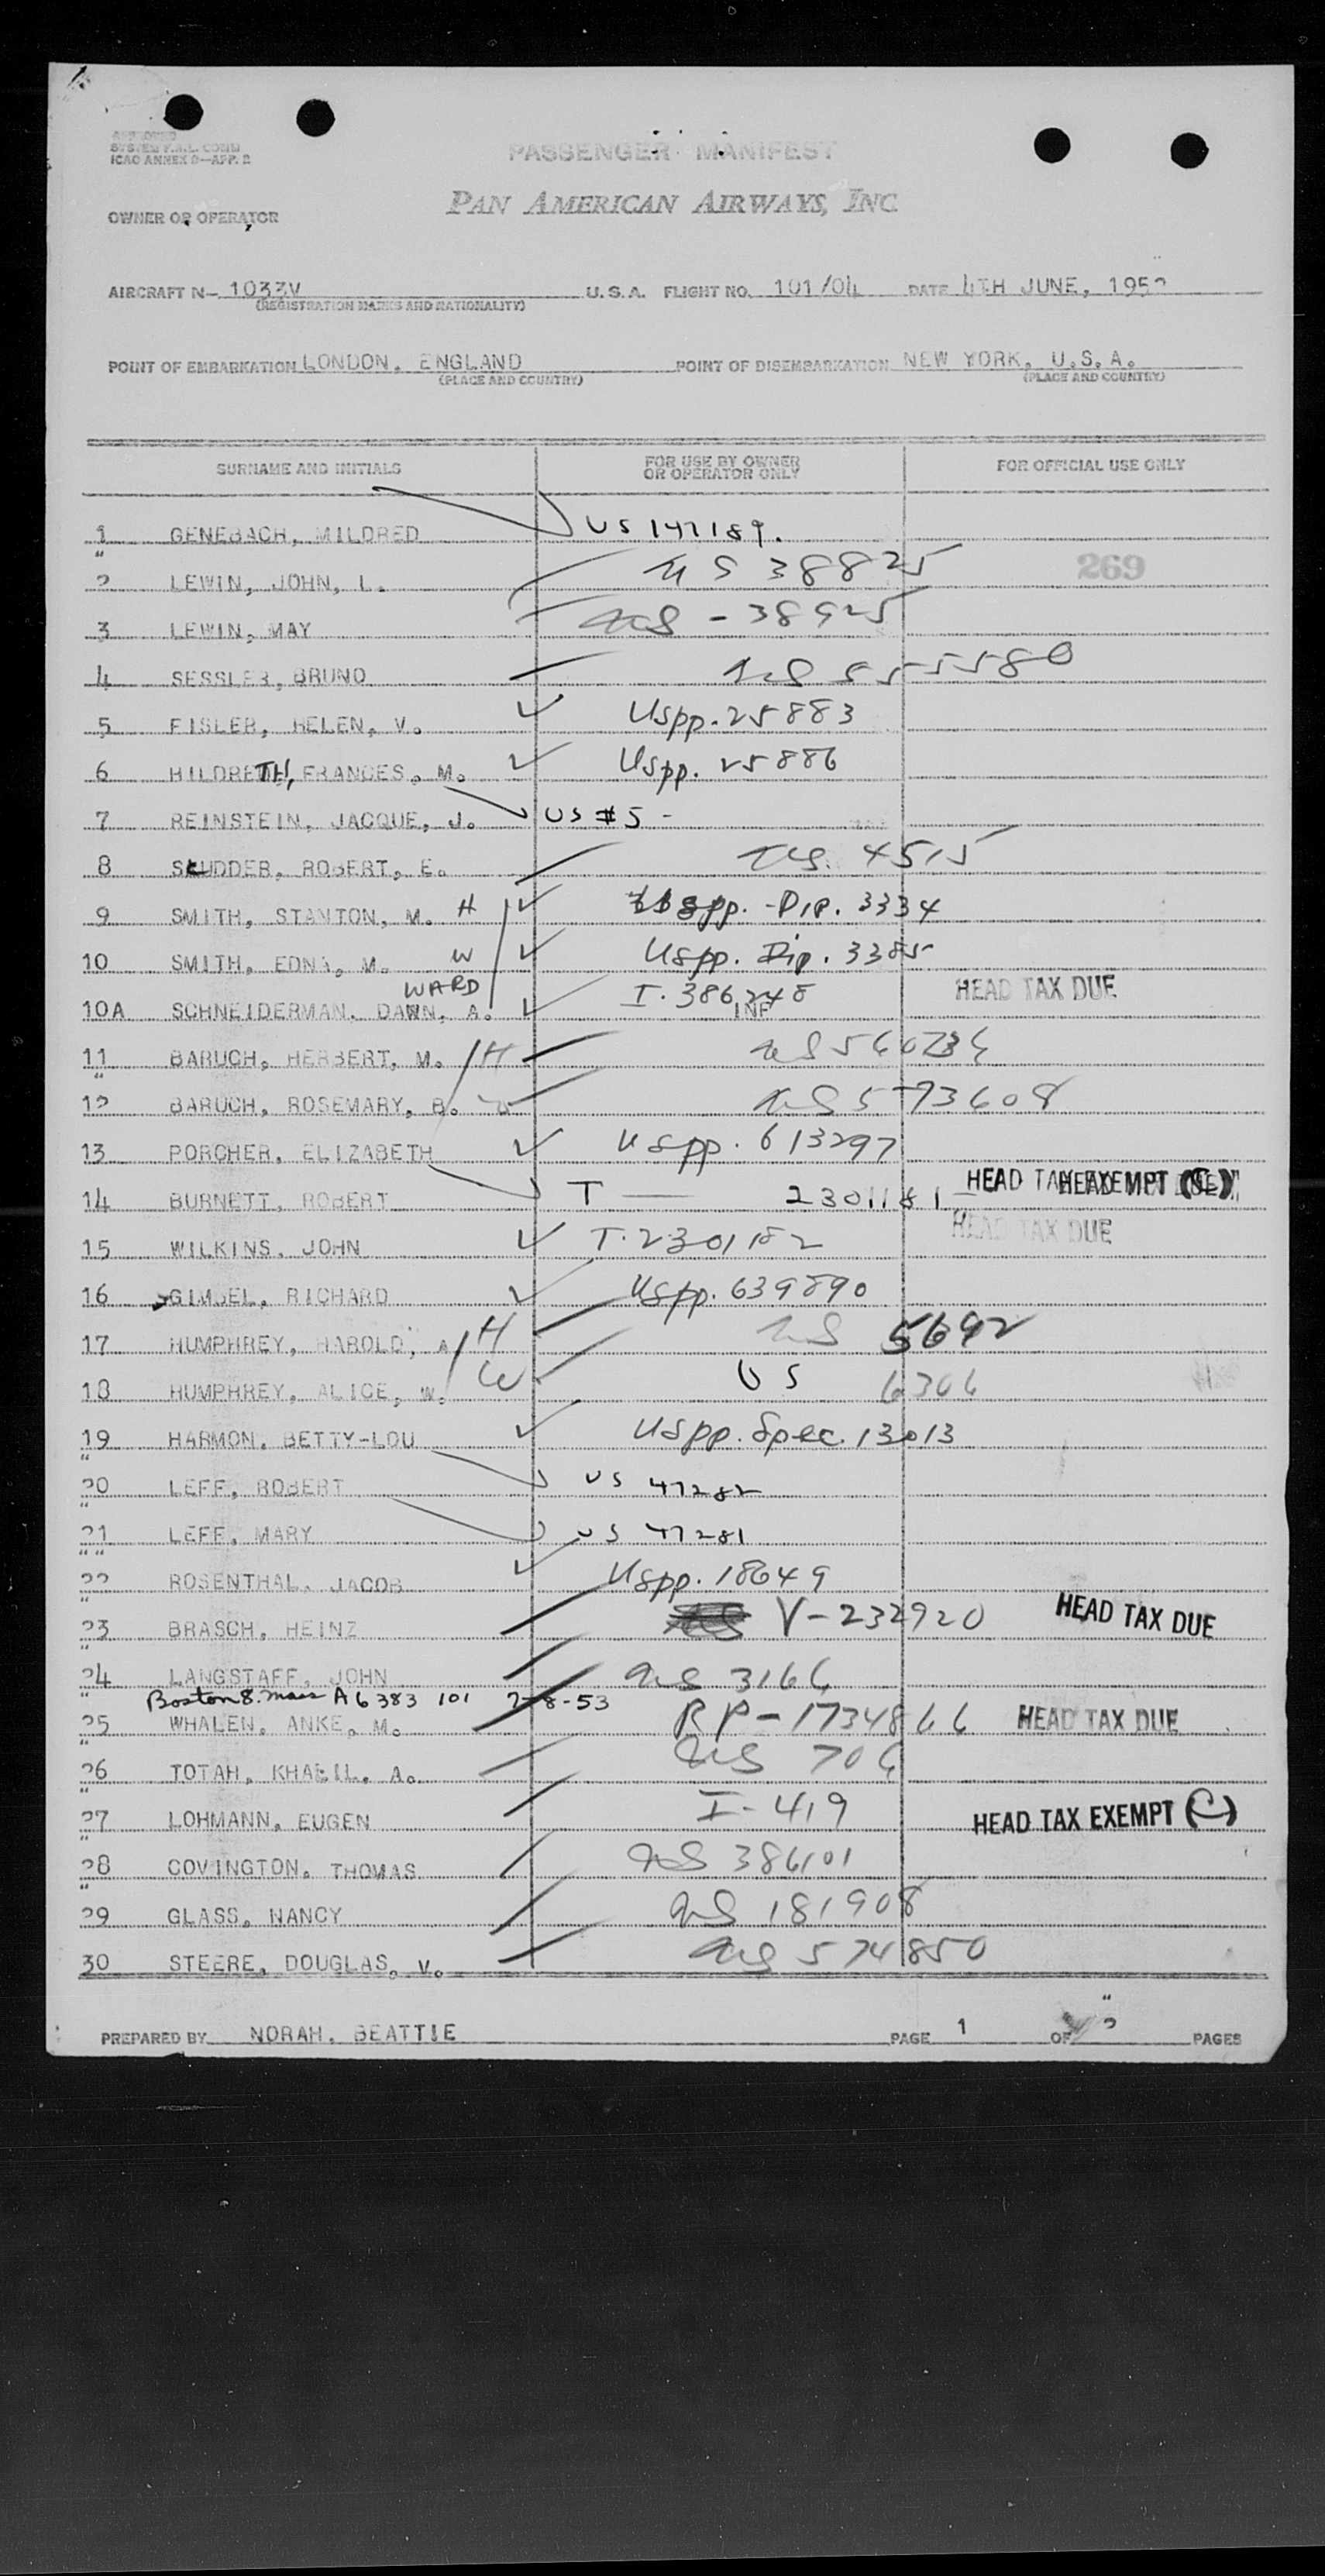 APPROVED
SYSTEM F.A.L. COMM
ICAO ANNEX 9—APP. 2
PASSENGER MANIFEST
PAN AMERICAN AIRWAYS, INC.
OWNER OR OPERATOR
AIRCRAFT N- 1033V U.S.A. FLIGHT NO. 101/04 DATE 4TH JUNE, 1952
(REGISTRATION MARKS AND NATIONALITY)
POINT OF EMBARKATION LONDON. ENGLAND POINT OF DISEMBARKATION NEW YORK, U.S.A.
(PLACE AND COUNTRY) (PLACE AND COUNTRY)
SURNAME AND INITIALS FOR USE BY OWNER OR OPERATOR ONLY FOR OFFICIAL USE ONLY
1 GENEBACH, MILDRED US 147189.
2 LEWIN, JOHN, L. US 38825 269
3 LEWIN, MAY US - 38925
4 SESSLER, BRUNO US 555580
5 FISLER, HELEN, V. USpp. 25883
6 HILDRETH, FRANCES, M. USpp. 25886
7 REINSTEIN, JACQUE, J. US #5 -
8 SCUDDER, ROBERT, E. US. 4515
9 SMITH, STANTON, M. H USpp. - Dip. 3334
10 SMITH, EDNA, M. W USpp. Dip. 3385
WARD
10A SCHNEIDERMAN, DAWN, A. I. 386248 INF HEAD TAX DUE
11 BARUCH, HERBERT, M. H US 560236
12 BARUCH, ROSEMARY, B. W US 573608
13 PORCHER, ELIZABETH USpp. 613297
14 BURNETT, ROBERT T — 2301181 HEAD TAX EXEMPT (C)
15 WILKINS, JOHN T. 2301182 HEAD TAX DUE
16 GIMBEL, RICHARD USpp. 639890
17 HUMPHREY, HAROLD, A. H US 5692
18 HUMPHREY, ALICE, W. W US 6306
19 HARMON, BETTY-LOU USpp. Spec. 13013
20 LEFF, ROBERT US 47282
21 LEFF, MARY US 47281
22 ROSENTHAL, JACOB USpp. 18649
23 BRASCH, HEINZ V-232920 HEAD TAX DUE
24 LANGSTAFF, JOHN US 3166
Boston 8. Mass A6 383 101 2-8-53
25 WHALEN, ANKE, M. RP-1734866 HEAD TAX DUE
26 TOTAH, KHALIL, A. US 706
27 LOHMANN, EUGEN I-419 HEAD TAX EXEMPT (C)
28 COVINGTON, THOMAS US 386101
29 GLASS, NANCY US 181908
30 STEERE, DOUGLAS, V. US 574850
PREPARED BY NORAH. BEATTIE PAGE 1 OF 2 PAGES